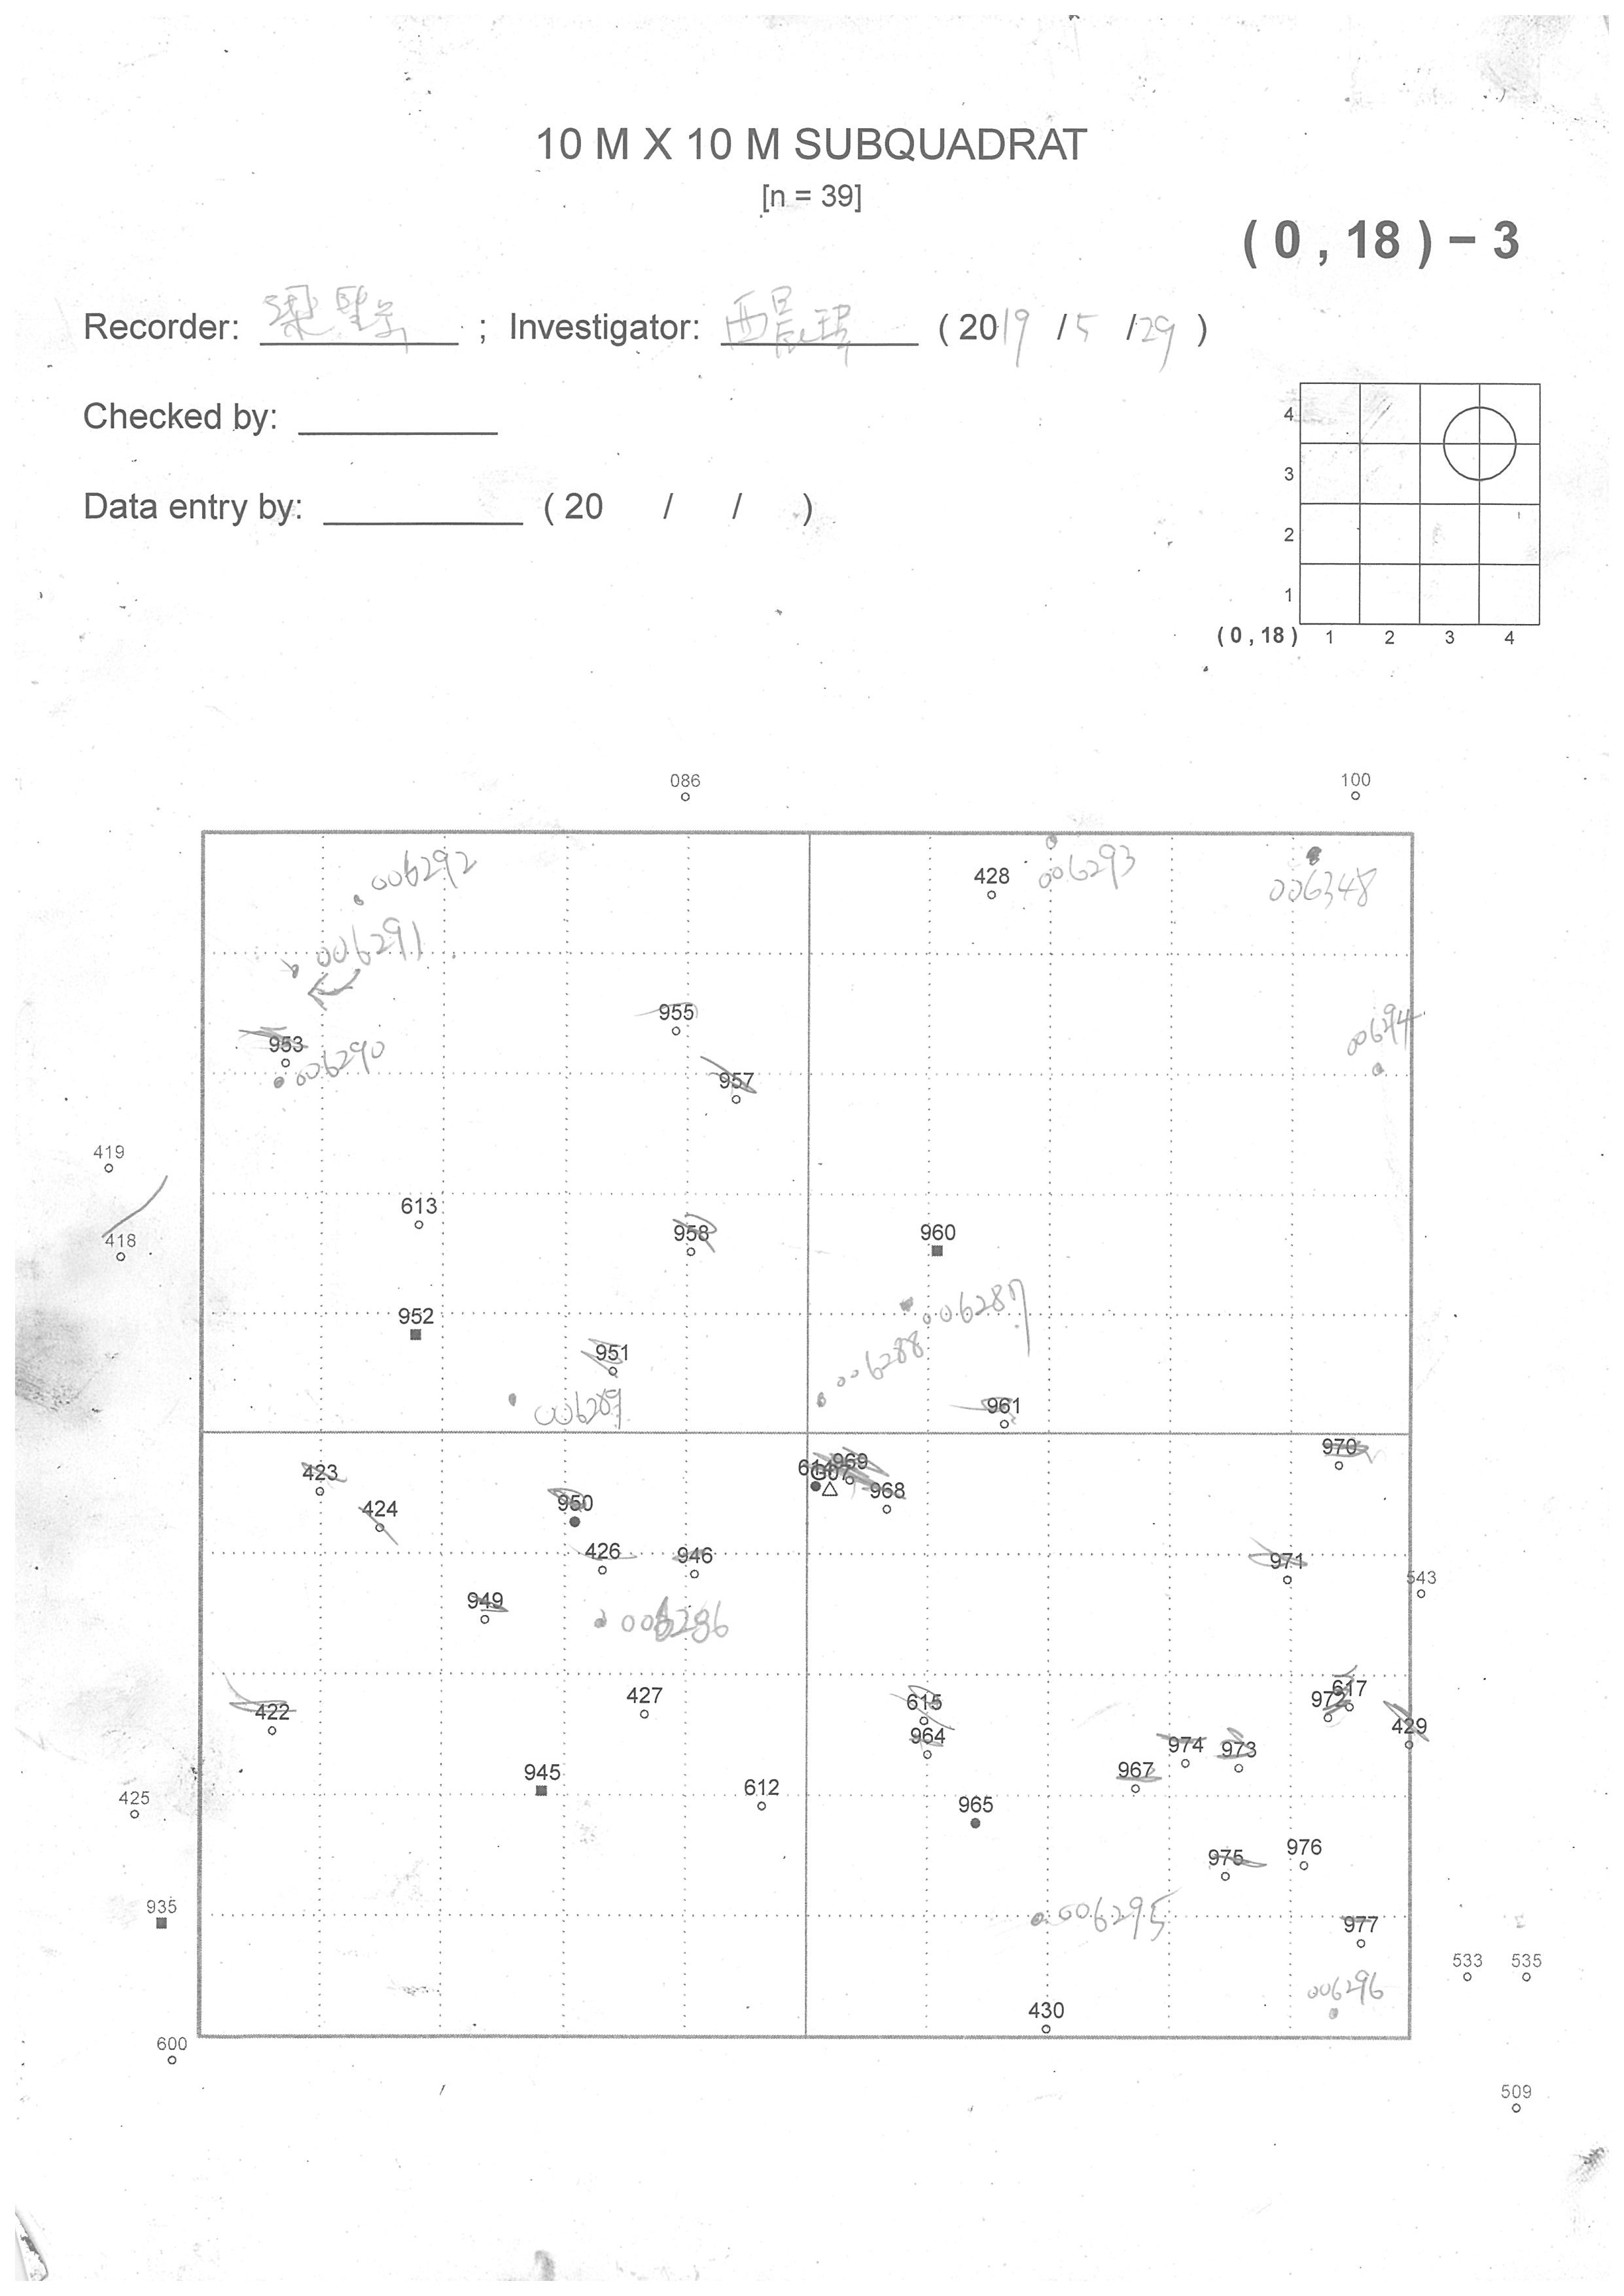 10 M X 10 M SUBQUADRAT
[n = 39]
( 0 , 18 ) − 3
Recorder: ; Investigator: ( 2019 / 5 / 29 )
Checked by:
Data entry by: ( 20 / / )
4
3
2
1
( 0 , 18 ) 1 2 3 4
086 100
006292 428 006293 006348
006291
955 006294
953 006290
957
419
613
418 958 960
952 006287
951 006288
006289 961
970
423 614 G07 969
424 950 968
426 946 971
949 543
006286
422 427 615 972 617
964 974 973 429
945 967
425 612 965
975 976
935 006295 977
533 535
006296
430
600
509